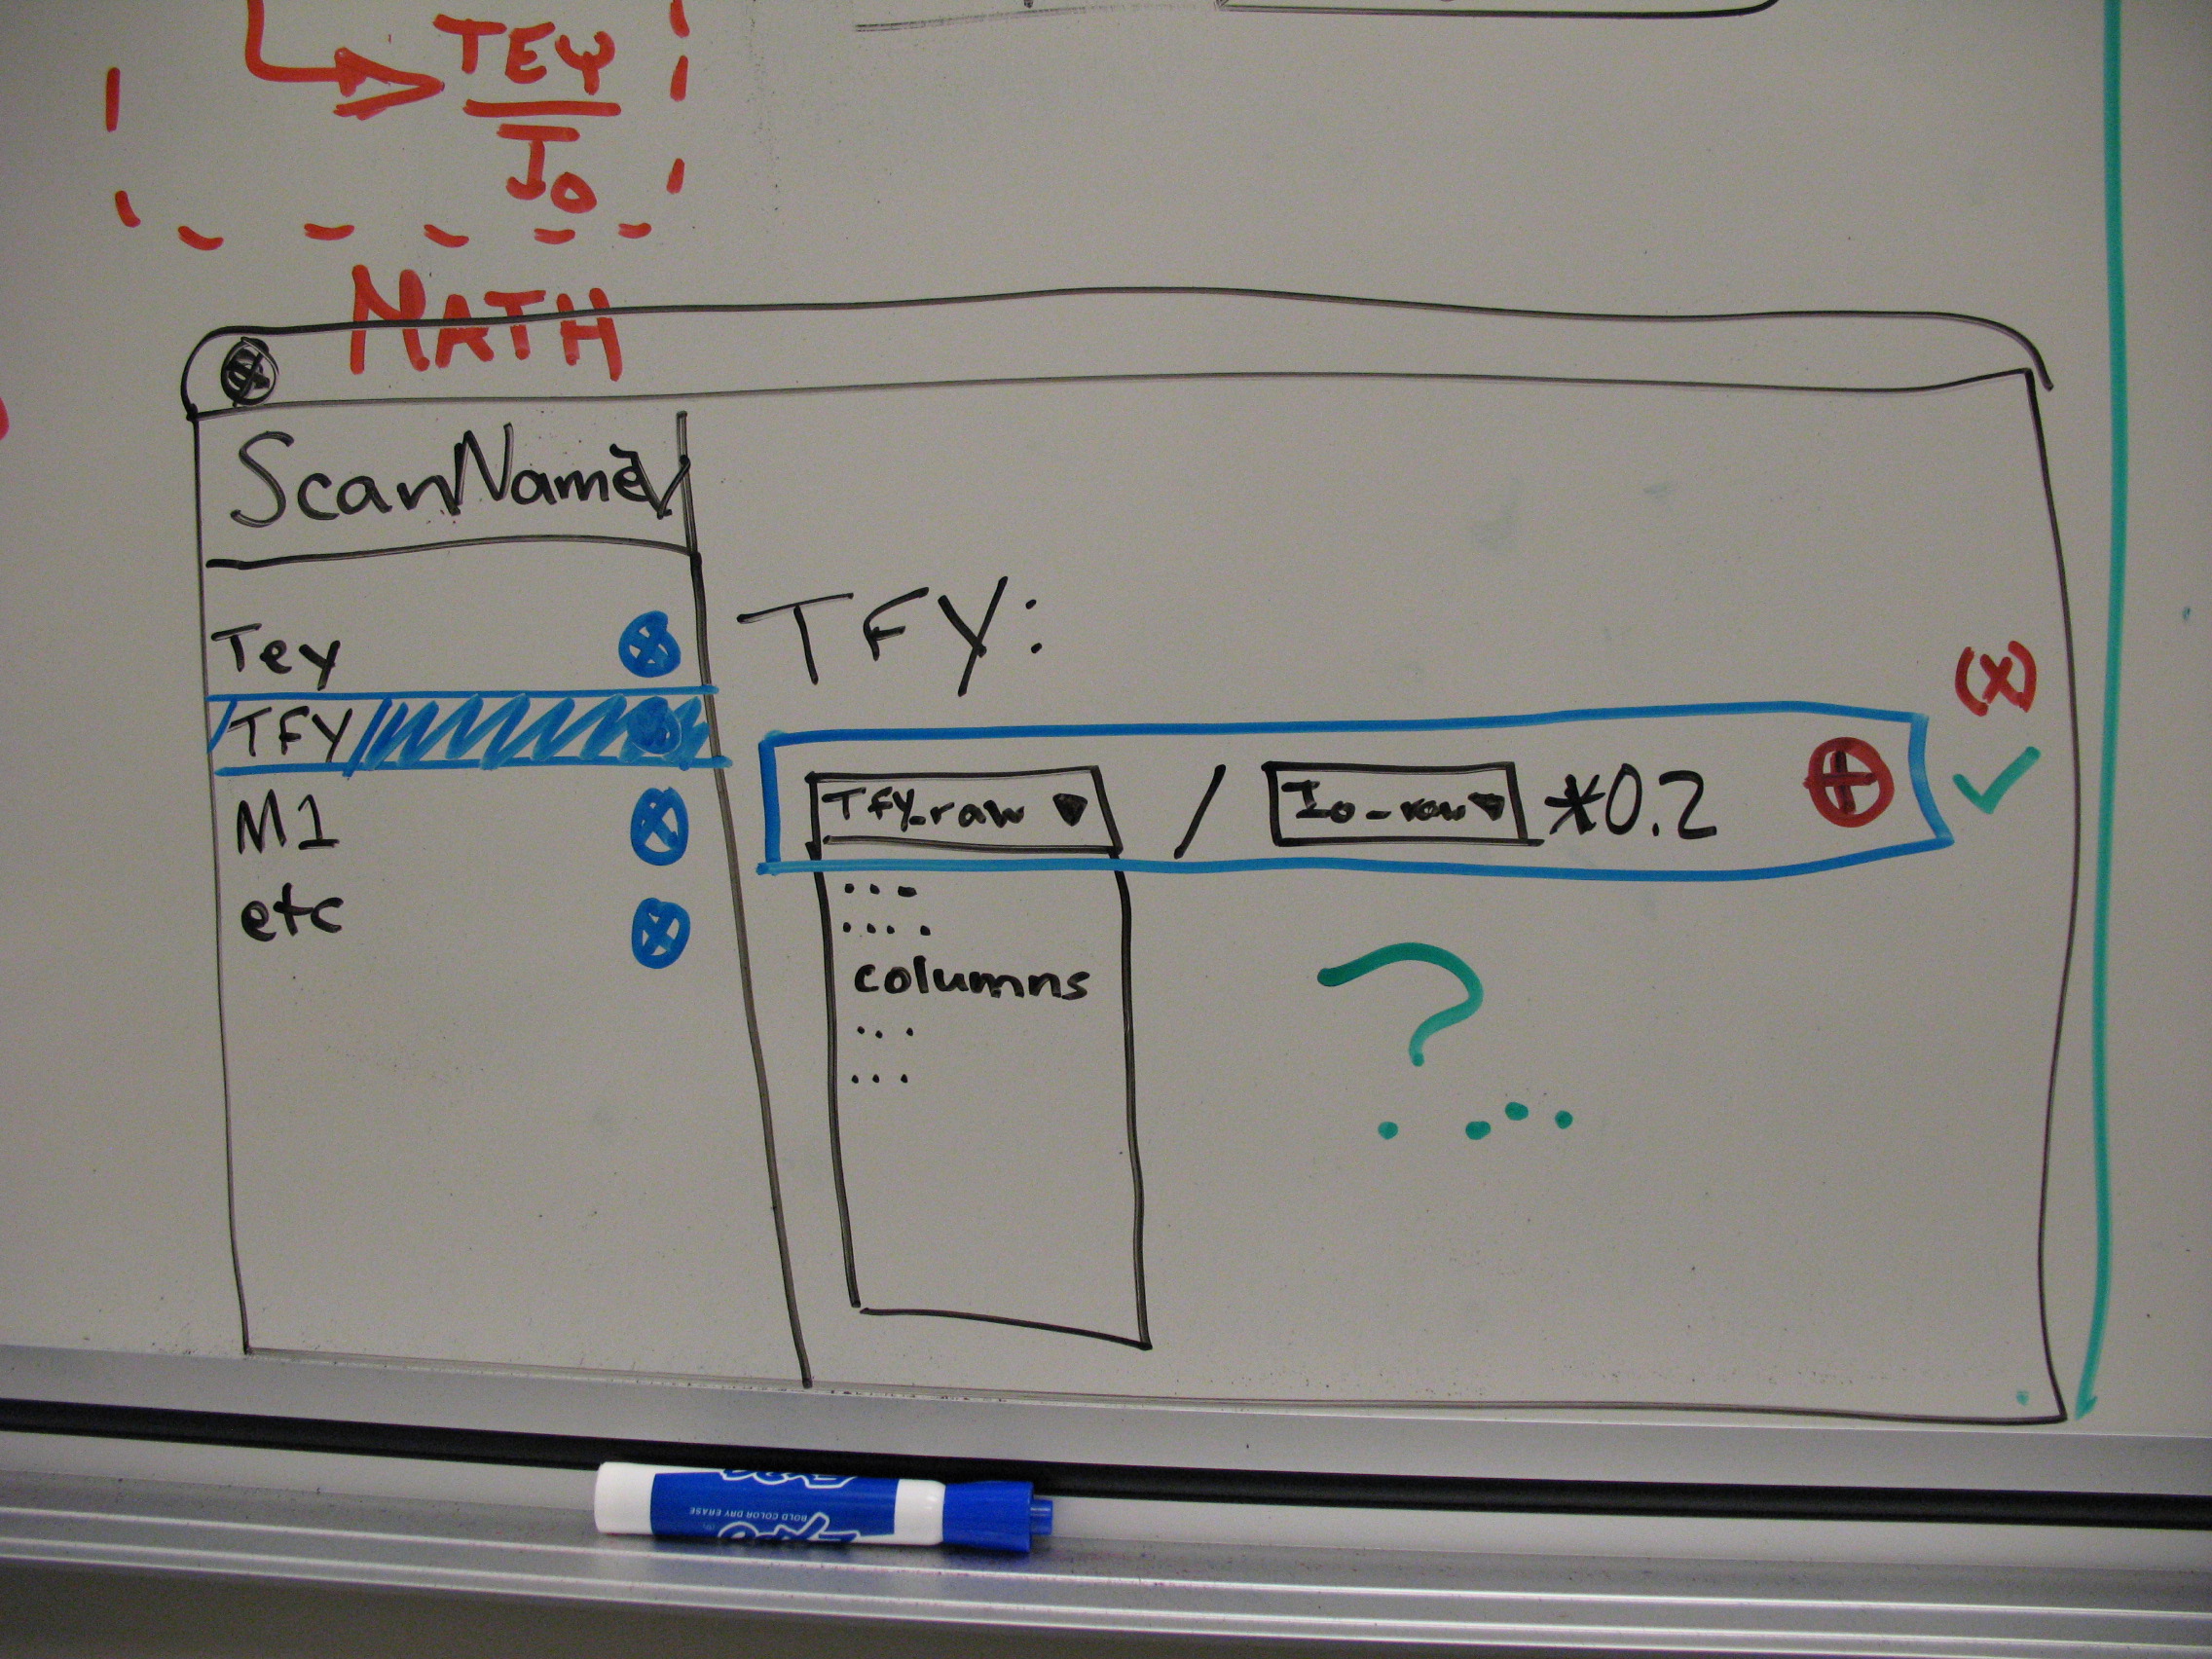 TEY
I0
MATH
ScanName
Tey
TFY
M1
etc
TFY:
TFY_raw / Io_raw *0.2
(x)
...
....
columns
...
...
?
EXPO
BOLD COLOR DRY ERASE